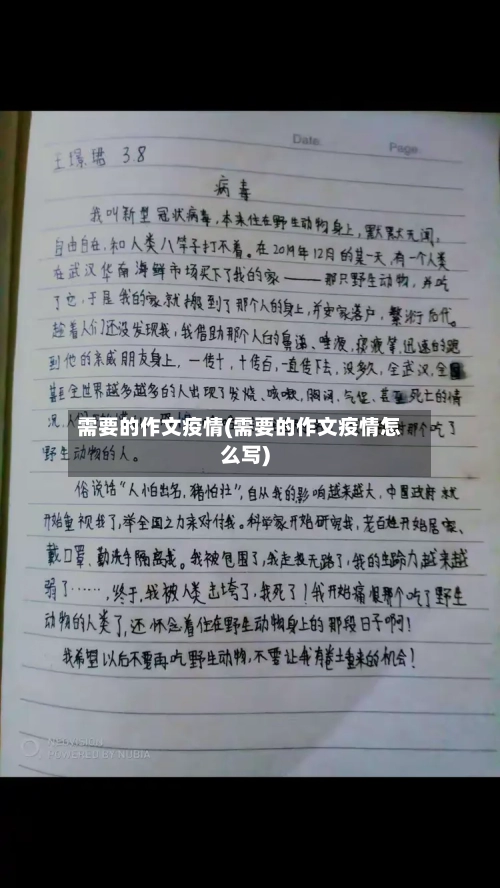 Date    Page
王璟珺 3.8
病毒
我叫新型冠状病毒，本来住在野生动物身上，默默无闻，
自由自在，和人类八竿子打不着。在2019年12月的某一天，有一个人类
在武汉华南海鲜市场买下了我的家——那只野生动物，并吃
了它，于是我的家就搬到了那个人的身上，并安家落户，繁衍后代。
趁着人们还没发现我，我借助那个人的鼻涕、唾液、痰液等，迅速的跑
到他的亲戚朋友身上，一传十，十传百，一直传下去，没多久，全武汉，全国
甚至全世界越多越多的人出现了发烧、咳嗽，胸闷，气促，甚至死亡的情
况，人们
需要的作文疫情(需要的作文疫情怎
么写)
那个吃了
野生动物的人。
俗说话“人怕出名，猪怕壮”，自从我的影响越来越大，中国政府就
开始重视我了，举全国之力来对付我。科学家开始研究我，老百姓开始居家、
戴口罩、勤洗手隔离我。我被包围了，我走投无路了，我的生命力越来越
弱了……，终于，我被人类击垮了，我死了！我开始痛恨那个吃了野生
动物的人类了，还怀念着住在野生动物身上的那段日子啊！
我希望以后不要再吃野生动物，不要让我有卷土重来的机会！
POWERED BY NUBIA